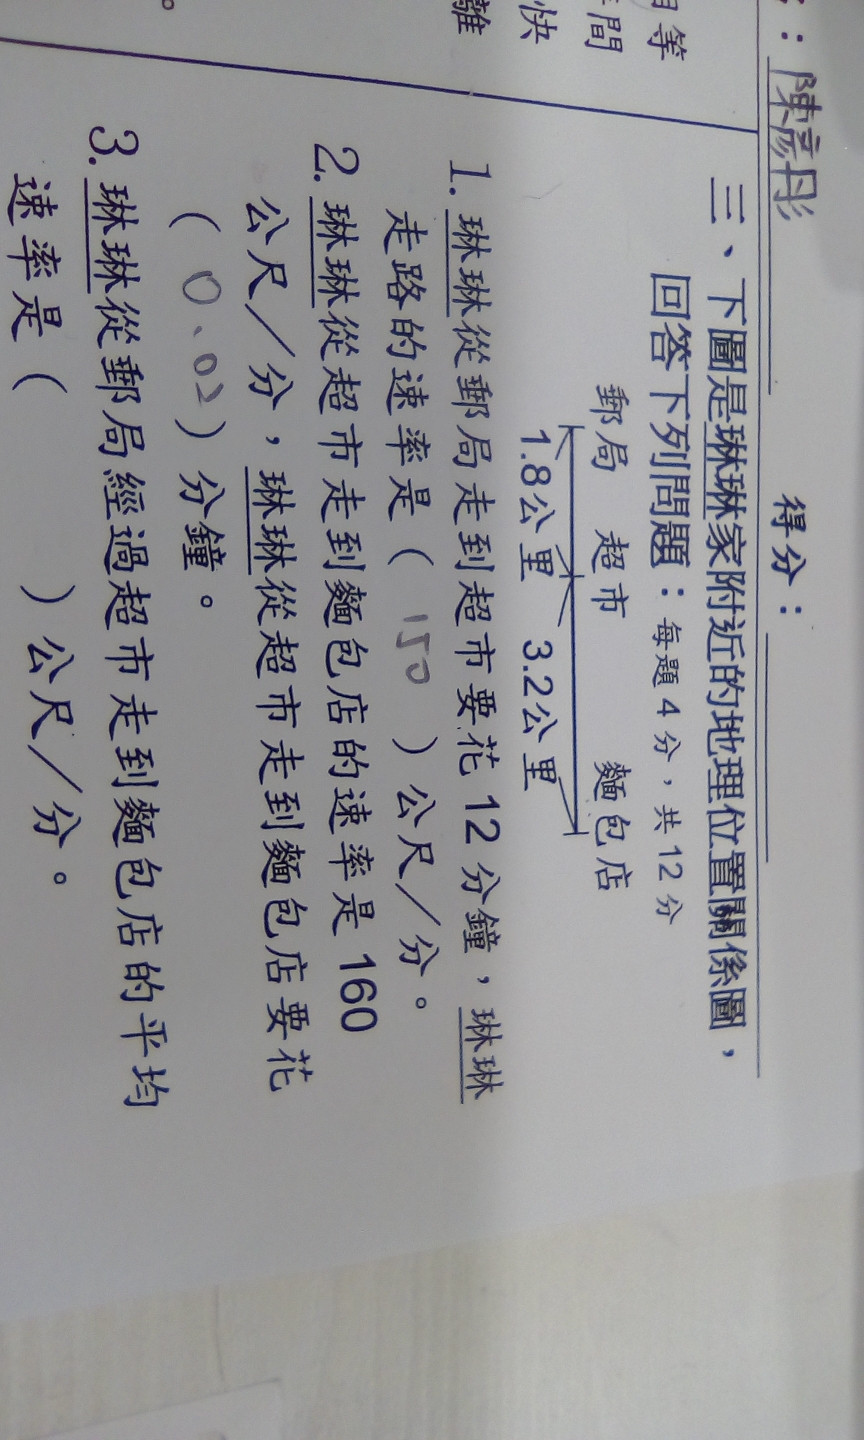 ：陳彥彤 得分：
等
間
快
離
。
三、下圖是琳琳家附近的地理位置關係圖，
回答下列問題：每題4分，共12分
郵局 超市 麵包店
1.8公里 3.2公里
1. 琳琳從郵局走到超市要花12分鐘，琳琳
走路的速率是（ 150 ）公尺／分。
2. 琳琳從超市走到麵包店的速率是160
公尺／分，琳琳從超市走到麵包店要花
（ 0.02 ）分鐘。
3. 琳琳從郵局經過超市走到麵包店的平均
速率是（ ）公尺／分。